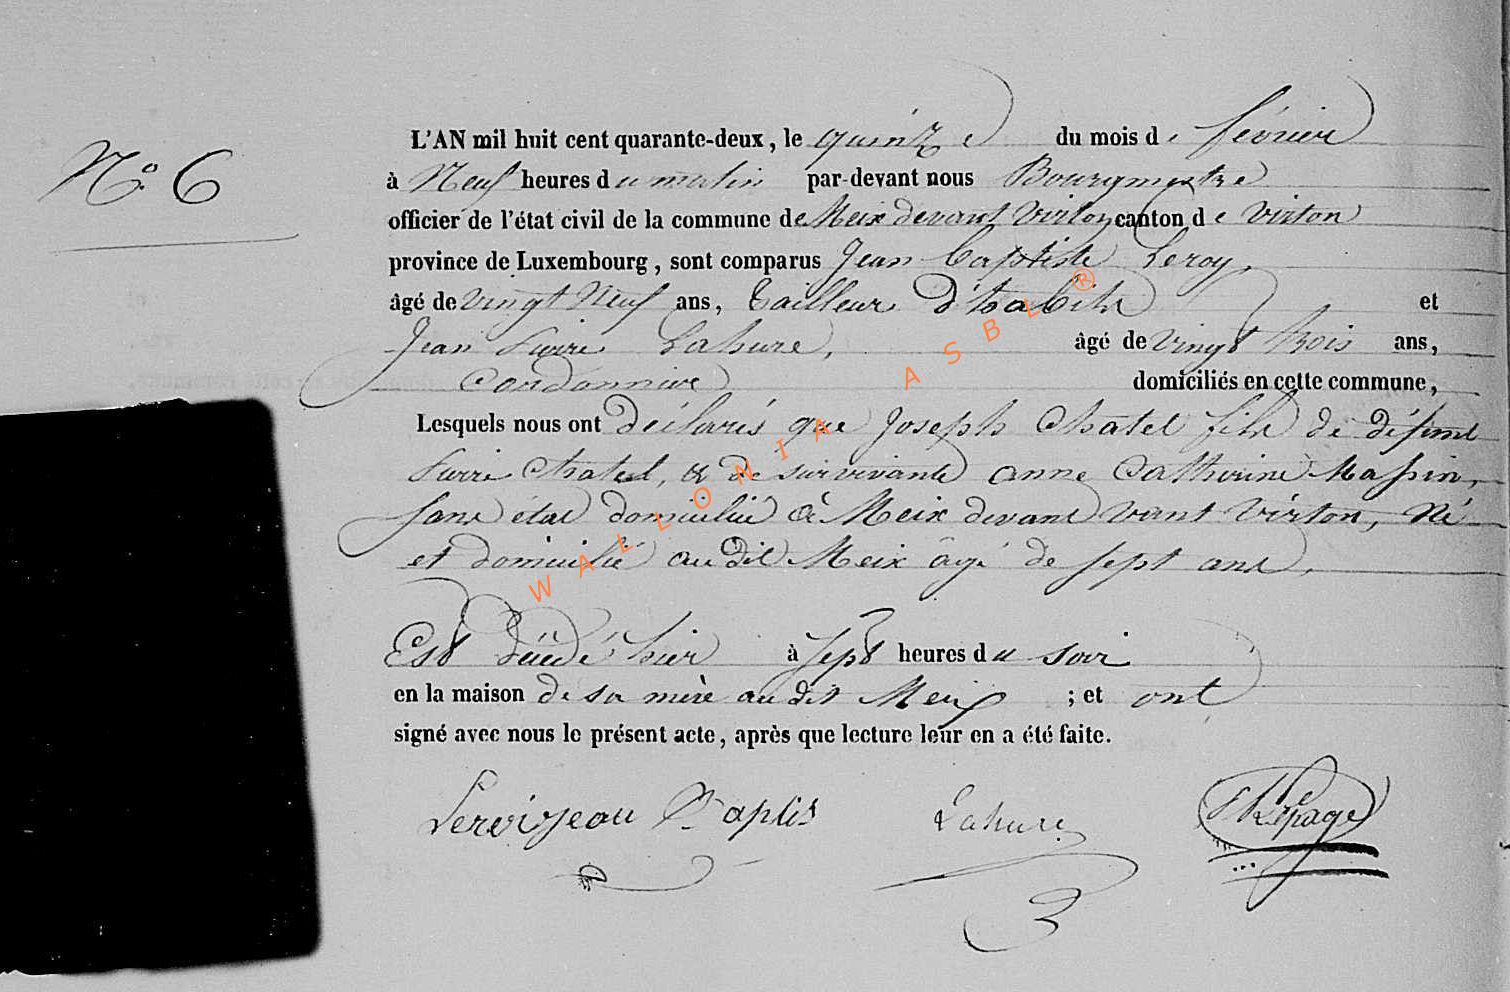 N.° 6
L'AN mil huit cent quarante-deux, le quinze du mois de février
à Neuf heures du matin par-devant nous Bourgmestre
officier de l'état civil de la commune de Meix devant Virton canton de Virton
province de Luxembourg, sont comparus Jean Baptiste Leroy,
âgé de vingt Neuf ans, Tailleur d'habits et
Jean Pierre Lahure, âgé de vingt trois ans,
Cordonnier domiciliés en cette commune,
Lesquels nous ont déclarés que Joseph Chatel fils de défunt
Pierre Chatel, & de survivante anne Catherine Massin,
sans état domicilié à Meix devant vant Virton, Né
et domicilié au dit Meix âgé de sept ans,
Est décédé hier à sept heures du soir
en la maison de sa mère au dit Meix ; et ont
signé avec nous le présent acte, après que lecture leur en a été faite.
Lahure Lepage
WALLONIA ASBL ®